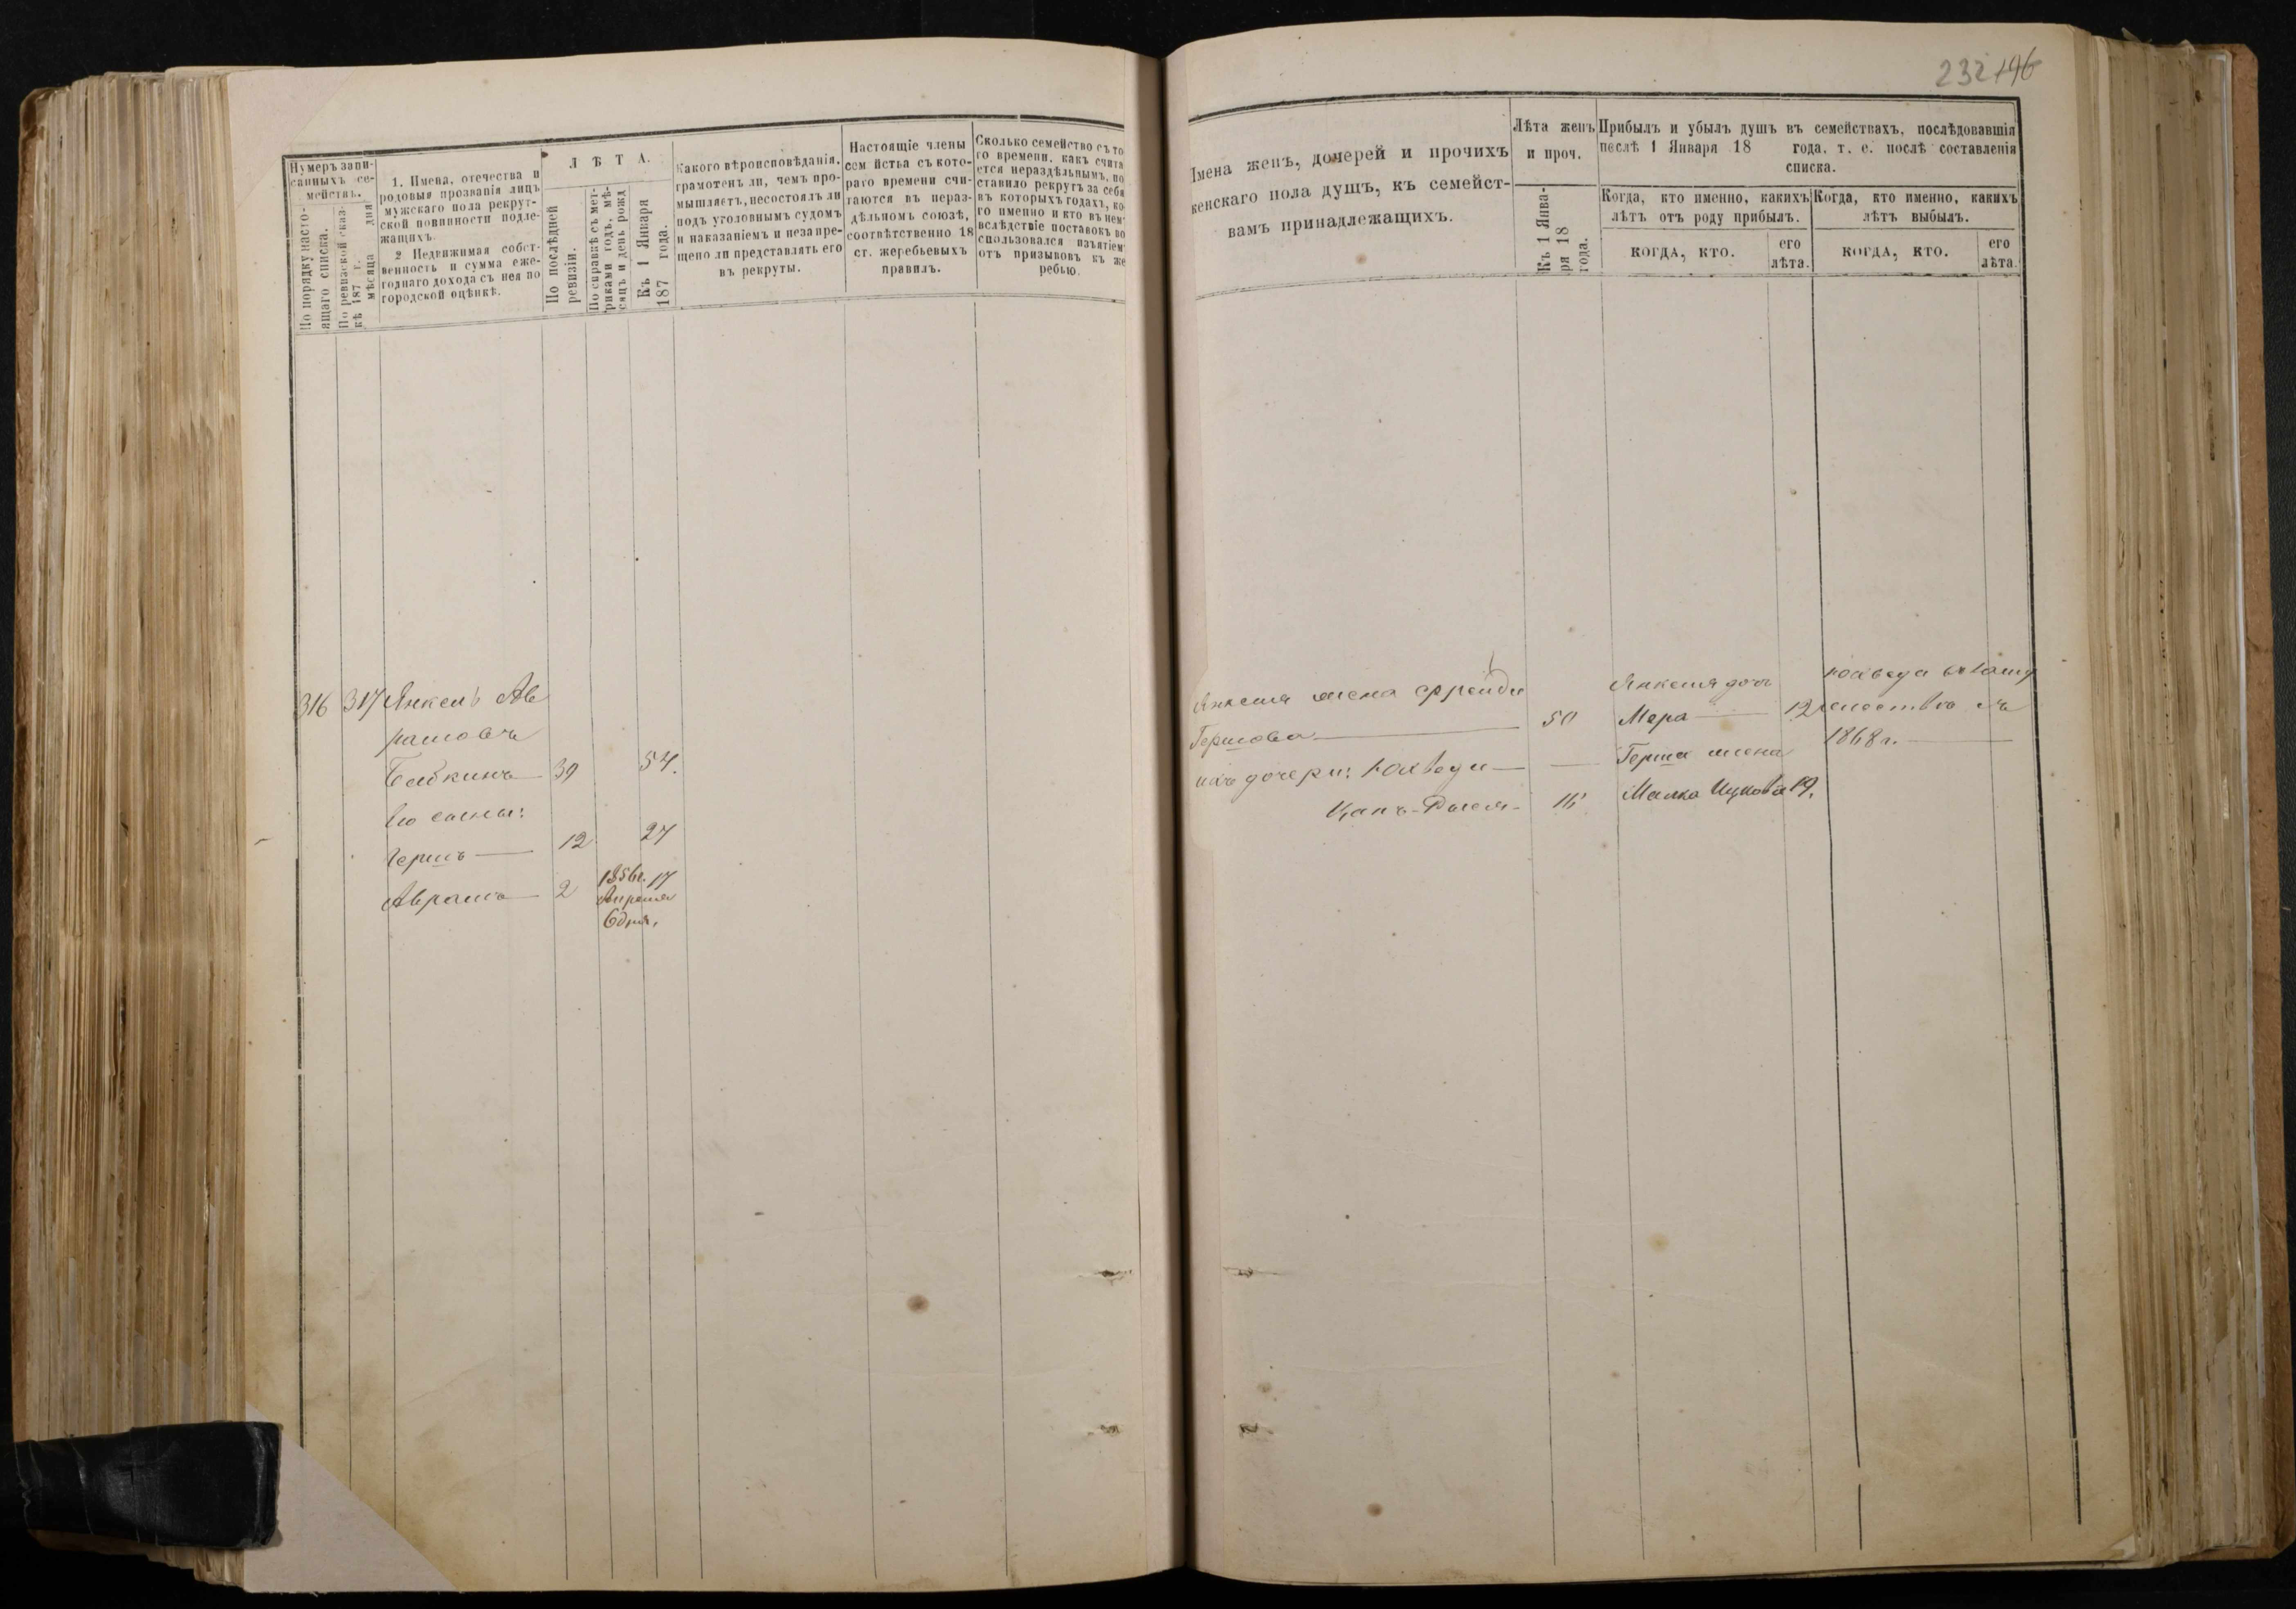 Нумеръ запи-
санныхъ се-
мействъ.
По порядку насто-
ящаго списка.
По ревизской сказ-
кѣ 187 г.
мѣсяца дня
1. Имена, отечества и
родовыя прозванія лицъ
мужскаго пола рекрут-
ской повинности подле-
жащихъ.
2 Недвижимая собст-
венность и сумма еже-
годнаго дохода съ нея по
городской оцѣнкѣ.
Л Ѣ Т А.
По послѣдней
ревизіи.
По справкѣ съ мет-
риками годъ, мѣ-
сяцъ и день рожд
Къ 1 Января
187 года.
Какого вѣроисповѣданія,
грамотенъ ли, чемъ про-
мышляетъ, несостоялъ ли
подъ уголовнымъ судомъ
и наказаніемъ и незапре-
щено ли представлять его
въ рекруты.
Настоящіе члены
сем йства съ кото-
раго времени счи-
таются въ нераз-
дѣльномъ союзѣ,
соотвѣтственно 18
ст. жеребьевыхъ
правилъ.
Сколько семейство съ то
го времени, какъ счита
ется нераздѣльнымъ, по
ставило рекрутъ за себя
въ которыхъ годахъ, ко
го именно и кто въ нем
вслѣдствіе поставокъ во
спользовался изъятіем
отъ призывовъ къ же
ребью.
316 317 Янкель Ав
рамовъ
Бабкинъ 39 54.
Его сыны:
Гершъ 12 27
Аврамъ 2 1856г. 17
Апреля
6 дня.
232 196
Імена женъ, дочерей и прочихъ
женскаго пола душъ, къ семейст-
вамъ принадлежащихъ.
Лѣта женъ
и проч.
Къ 1 Янва-
ря 18
года.
Прибылъ и убылъ душъ въ семействахъ, послѣдовавшія
песлѣ 1 Января 18 года, т. е. послѣ составленія
списка.
Когда, кто именно, какихъ
лѣтъ отъ роду прибылъ.
КОГДА, КТО.
его
лѣта.
Когда, кто именно, какихъ
лѣтъ выбылъ.
КОГДА, КТО.
его
лѣта.
Янкеля жена Фрейда
Гершова 50
ихъ дочери: Юхведа
16
Янкеля дочь
Мера 12
Герша жена
Малка Ицкова 19.
Юхведа въ заму
жество въ
1868 г.